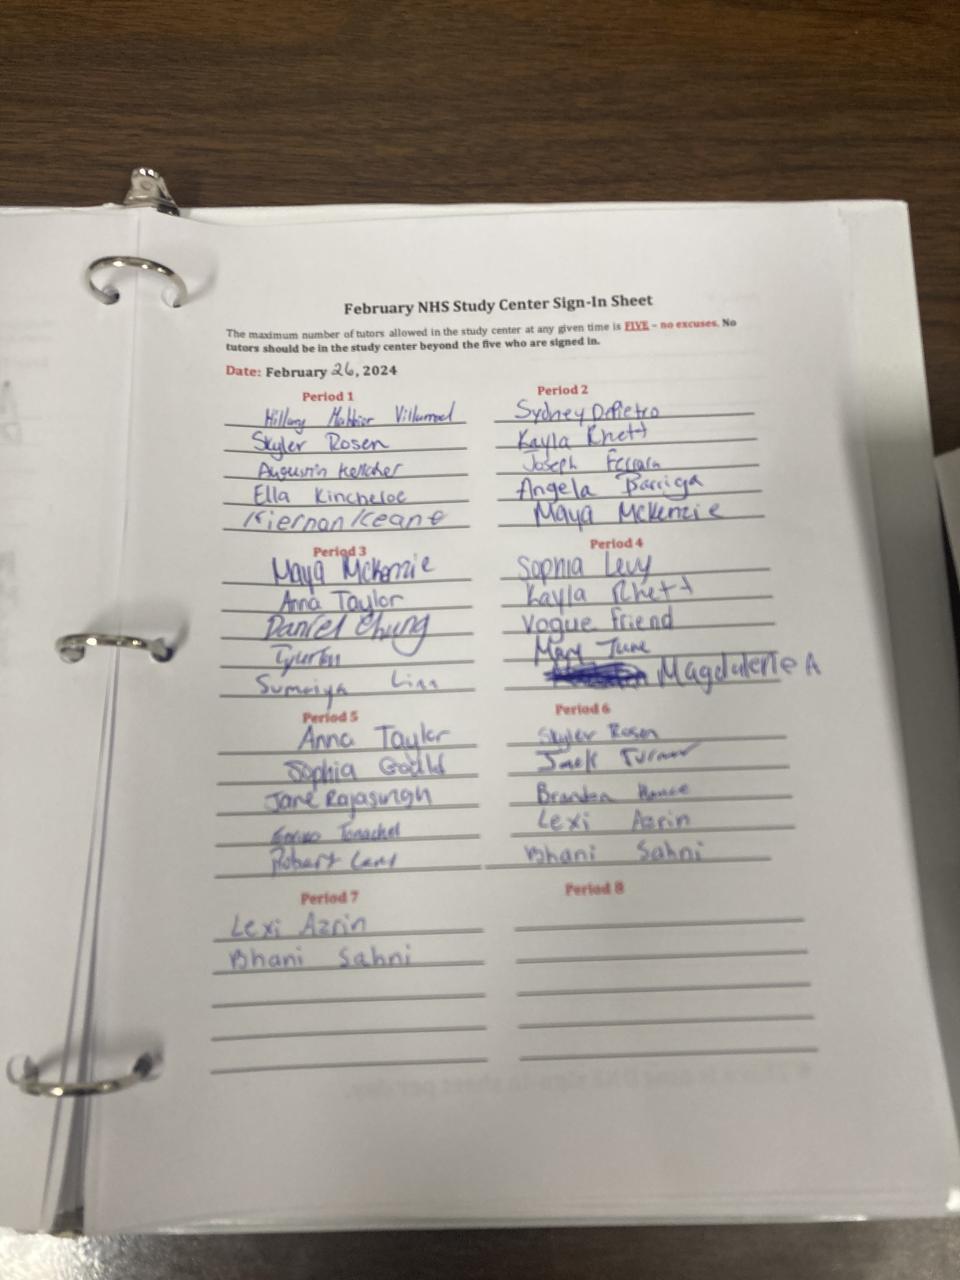 February NHS Study Center Sign-In Sheet
The maximum number of tutors allowed in the study center at any given time is FIVE – no excuses. No
tutors should be in the study center beyond the five who are signed in.
Date: February 26, 2024
Period 1
Hillary
Skyler Rosen
Augustin Kelleher
Ella Kincheloe
Kiernan Keane
Period 2
Sydney DiPietro
Kayla Rhett
Joseph Ferrara
Angela Barriga
Maya McKenzie
Period 3
Maya McKenzie
Anna Taylor
Daniel Chung
Sumaiya
Period 4
Sophia Levy
Kayla Rhett
Vogue Friend
Mary June
Magdalene A
Period 5
Anna Taylor
Sophia Gould
Jane Rajasingh
Robert
Period 6
Skyler Rosen
Jack Turner
Brandon
Lexi Azrin
Bhani Sahni
Period 7
Lexi Azrin
Bhani Sahni
Period 8